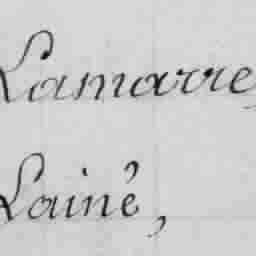 Lamarre,
Lainé,